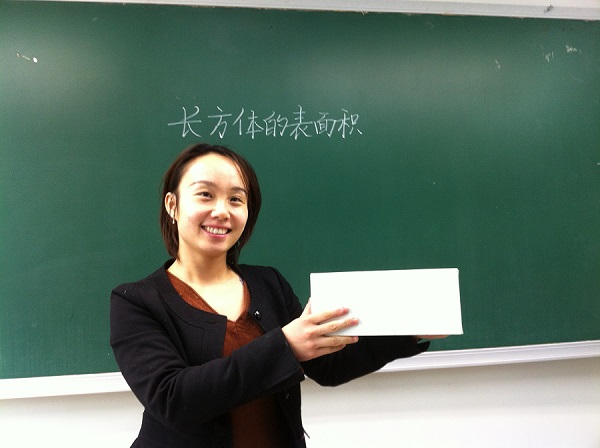 长方体的表面积